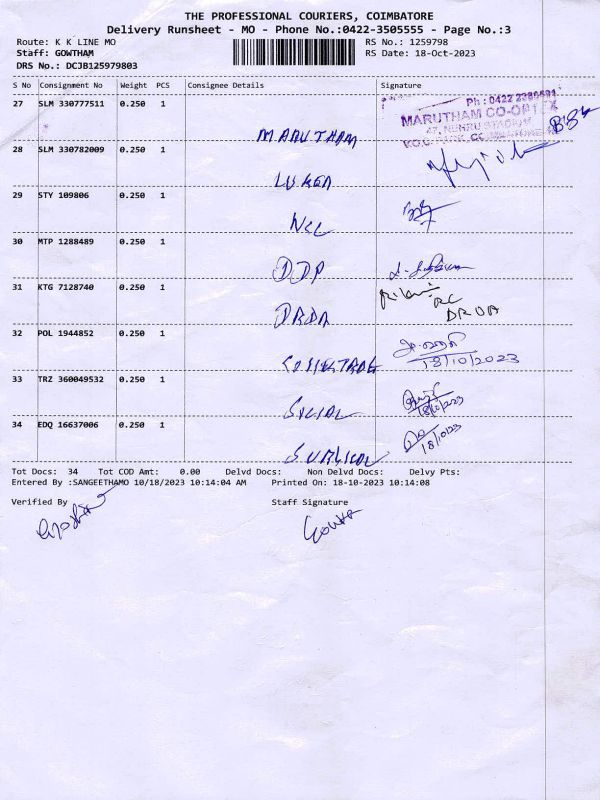 THE PROFESSIONAL COURIERS, COIMBATORE
Delivery Runsheet - MO - Phone No.:0422-3505555 - Page No.:3
Route: K K LINE MO RS No.: 1259798
Staff: GOWTHAM RS Date: 18-Oct-2023
DRS No.: DCJB125979803
S No Consignment No Weight PCS Consignee Details Signature
27 SLM 330777511 0.250 1
Ph : 0422
MARUTHAM CO-OPTEX
47, NEHRU STADIUM
MARUTHAM
28 SLM 330782009 0.250 1
29 STY 109806 0.250 1
NCC
30 MTP 1288489 0.250 1
DDP
31 KTG 7128740 0.250 1
RC
DRDA
DRDA
32 POL 1944852 0.250 1
18/10/2023
33 TRZ 360049532 0.250 1
18/10/23
SOCIAL
34 EDQ 16637006 0.250 1
18/10/23
Tot Docs: 34 Tot COD Amt: 0.00 Delvd Docs: Non Delvd Docs: Delvy Pts:
Entered By :SANGEETHAMO 10/18/2023 10:14:04 AM Printed On: 18-10-2023 10:14:08
Verified By Staff Signature